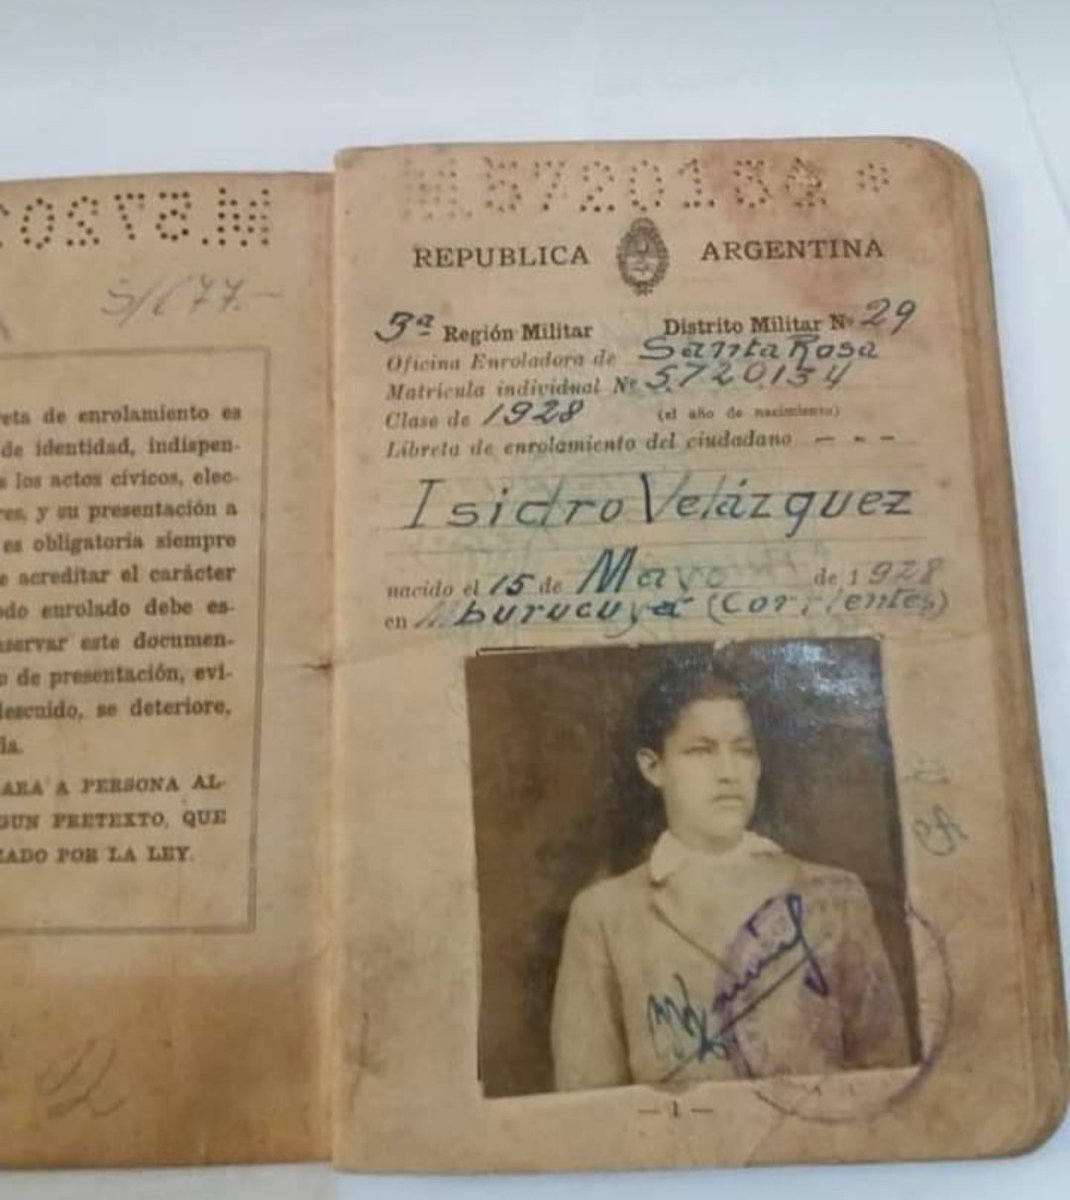 S/C 77.-
reta de enrolamiento es
de identidad, indispen-
s los actos cívicos, elec-
res, y su presentación a
es obligatoria siempre
e acreditar el carácter
odo enrolado debe es-
nservar este documen-
o de presentación, evi-
descuido, se deteriore,
da.
ARA A PERSONA AL-
GUN PRETEXTO, QUE
ZADO POR LA LEY.
M.5720154 *
REPUBLICA ARGENTINA
3ª Región Militar Distrito Militar Nº 29
Oficina Enroladora de Santa Rosa
Matrícula individual Nº 5.720.154
Clase de 1928 (el año de nacimiento)
Libreta de enrolamiento del ciudadano - - -
Isidro Velázquez
nacido el 15 de Mayo de 1928
en Mburucuyá (Corrientes)
— 1 —